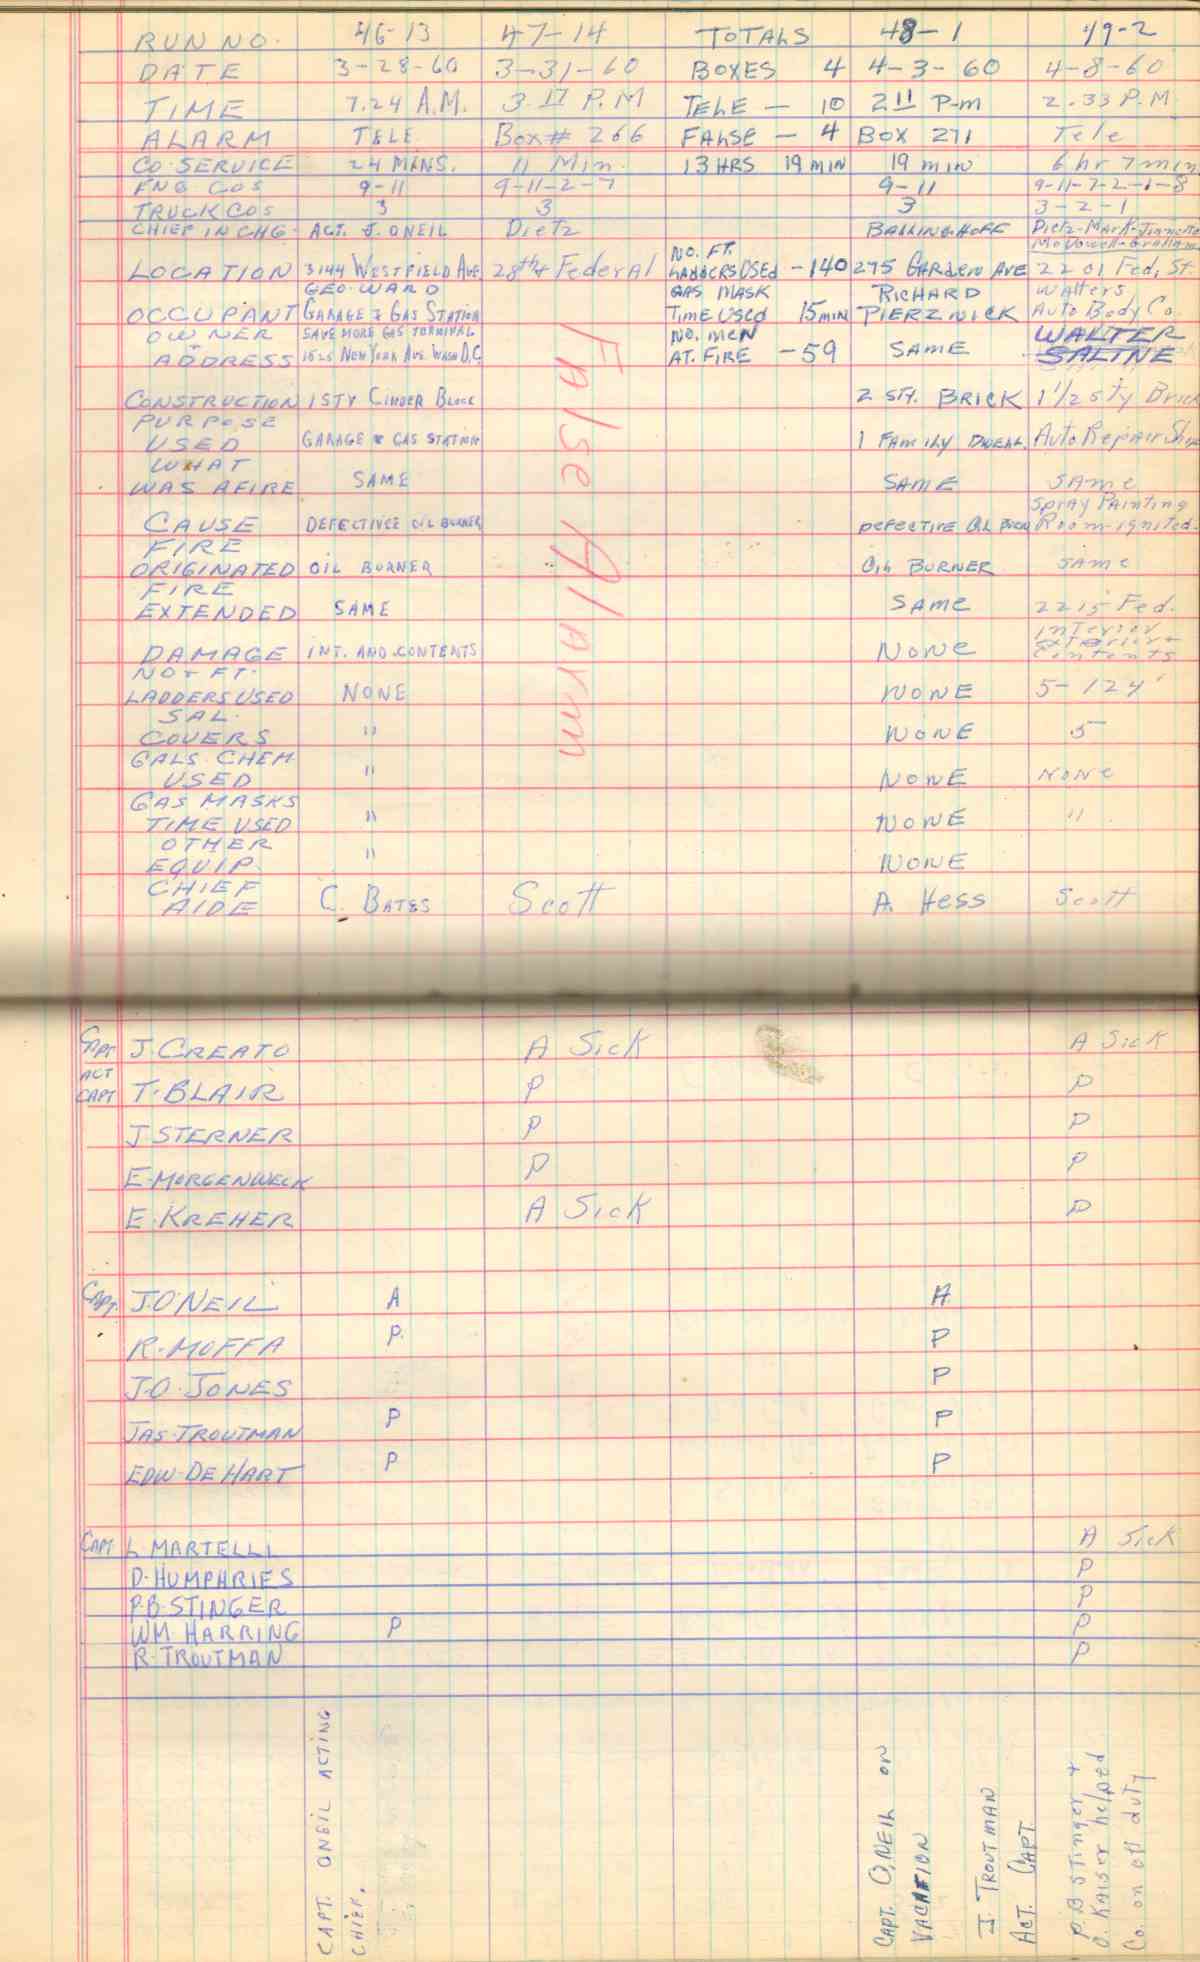 RUN NO. 46-13 47-14 TOTALS 48-1 49-2
DATE 3-28-60 3-31-60 BOXES 4 4-3-60 4-8-60
TIME 7.24 A.M. 3 17 P.M TELE - 10 2 11 P-m 2.33 P.M.
ALARM TELE Box# 266 FALSE - 4 BOX 271 Tele
CO. SERVICE 24 MINS. 11 Min. 13 HRS 19 MIN 19 min 6 hr 7 min
ENG COS 9-11 9-11-2-7 9-11 9-11-7-2-1-8
TRUCK COS 3 3 3 3-2-1
CHIEF IN CHG- ACT. J. ONEIL Dietz BALLINGHOFF Dietz-Mark-Jinnette
McDowell-Graham
NO. FT.
LOCATION 3144 WESTFIELD AVE, 28th + Federal LADDERS USED -140 275 GARDEN AVE 2201 Fed. St.
GEO. WARD GAS MASK RICHARD Walters
OCCUPANT GARAGE & GAS STATION TIME USED 15 MIN PIERZNICK Auto Body Co.
OWNER SAVE MORE GAS TERMINAL NO. MEN WALTER
ADDRESS 1625 NEW YORK AVE. WASH D.C. AT. FIRE -59 SAME SALINE
False Alarm
CONSTRUCTION 1 STY CINDER BLOCK 2 STY. BRICK 1 1/2 sty Brick
PURPOSE
USED GARAGE & GAS STATION 1 FAMILY DWELL. Auto Repair Shop
WHAT
WAS AFIRE SAME SAME SAME
Spray Painting
CAUSE DEFECTIVCE OIL BURNER DEFECTIVE OIL BURN Room-ignited.
FIRE
ORIGINATED OIL BURNER OIL BURNER SAME
FIRE
EXTENDED SAME SAME 2215 Fed.
interior
exterior +
DAMAGE INT. AND CONTENTS NONE Contents
NO + FT.
LADDERS USED NONE NONE 5-124'
SAL.
COVERS " NONE 5
GALS. CHEM
USED " NONE NONE
GAS MASKS
TIME USED " NONE "
OTHER
EQUIP. " NONE
CHIEF
AIDE C. BATES Scott A. Hess Scott
CAPT J. CREATO A Sick A Sick
ACT
CAPT T. BLAIR P P
J STERNER P P
E. MORGENWECK P P
E. KREHER A Sick P
CAPT. J. O'NEIL A A
R. MOFFA P. P
J. O. JONES P
JAS. TROUTMAN P P
EDW. DE HART P P
CAPT L. MARTELLI A Sick
D. HUMPHRIES P
P. B. STINGER P
WM. HARRING P P
R. TROUTMAN P
CAPT. ONEIL ACTING
CHIEF.
CAPT. O,NEIL ON
VACATION
J. TROUTMAN
ACT. CAPT.
P. B Stinger +
O. KAISER helped
Co. on off duty